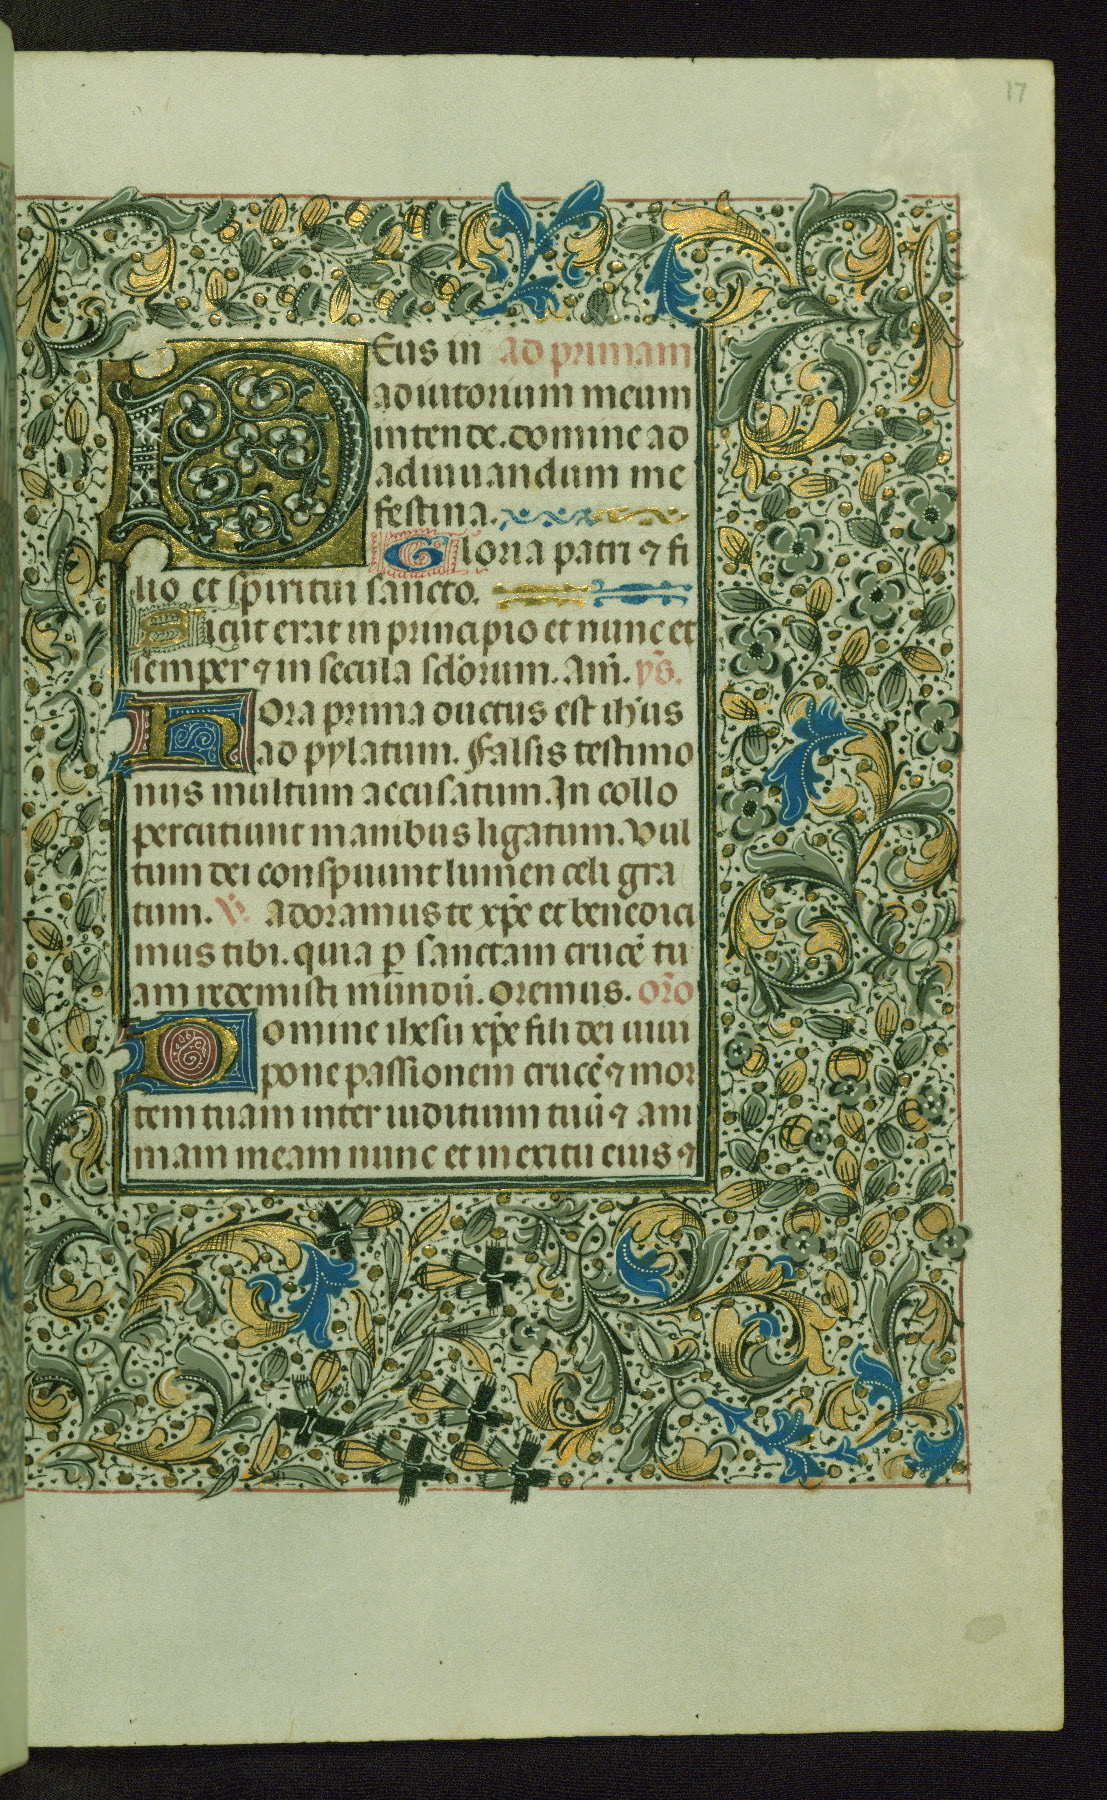 17
Deus in ad primam
adiutorium meum
intende. domine ad
adiuuandum me
festina.
Gloria patri ⁊ fi
lio et spiritui sancto.
Sicut erat in principio et nunc et
semper ⁊ in secula sclorum. Am̄. ẏs.
Hora prima ductus est ih'us
ad pylatum. Falsis testimo
niis multum accusatum. In collo
percutiunt manibus ligatum. Vul
tum dei conspuunt lumen celi gra
tum. V. adoramus te xp̄e et benedici
mus tibi. quia ꝑ sanctam crucē tu
am redemisti mundū. oremus. or̄o
Domine ihesu xp̄e fili dei uiui
pone passionem crucē ⁊ mor
tem tuam inter iuditium tuū ⁊ ani
mam meam nunc et in exitu eius ⁊